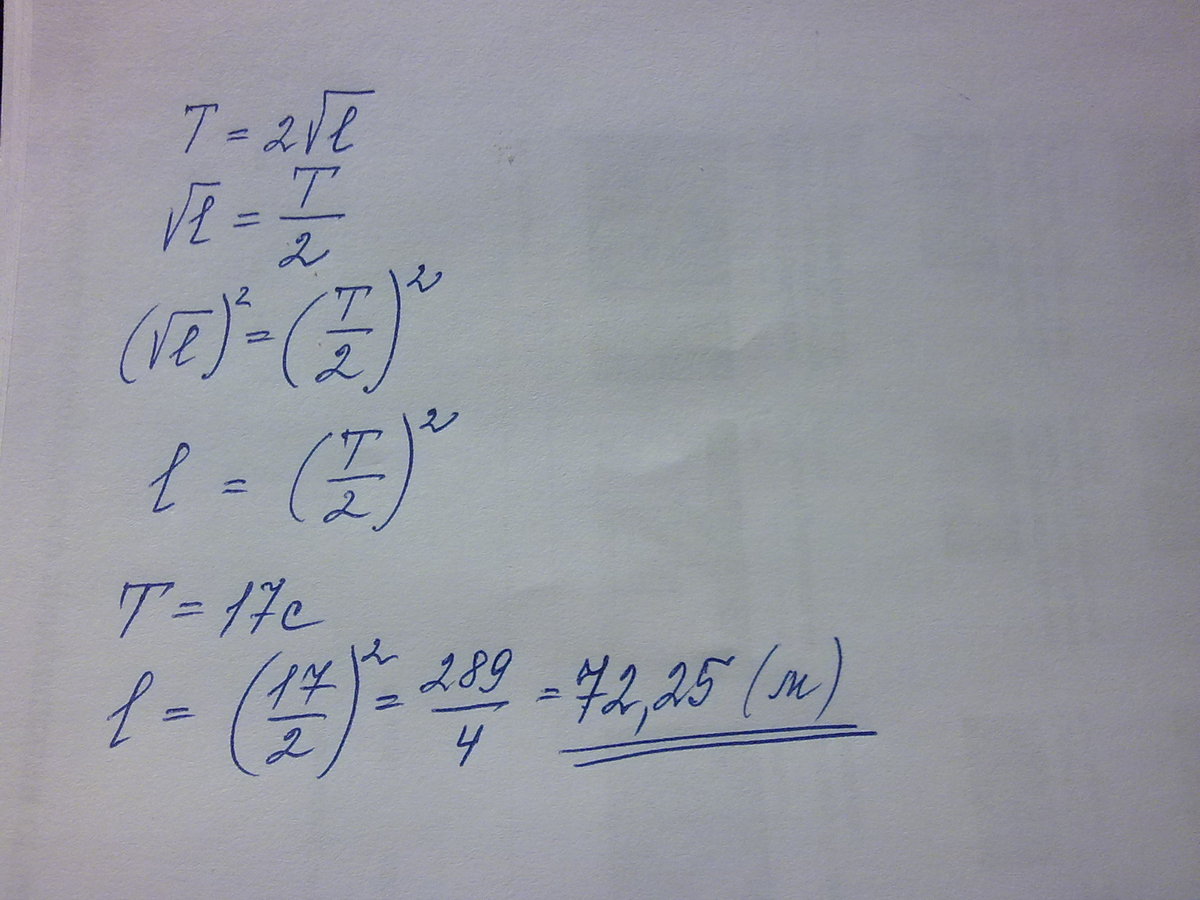 T = 2√l
√l = T/2
(√l)² = (T/2)²
l = (T/2)²
T = 17с
l = (17/2)² = 289/4 = 72,25 (м)